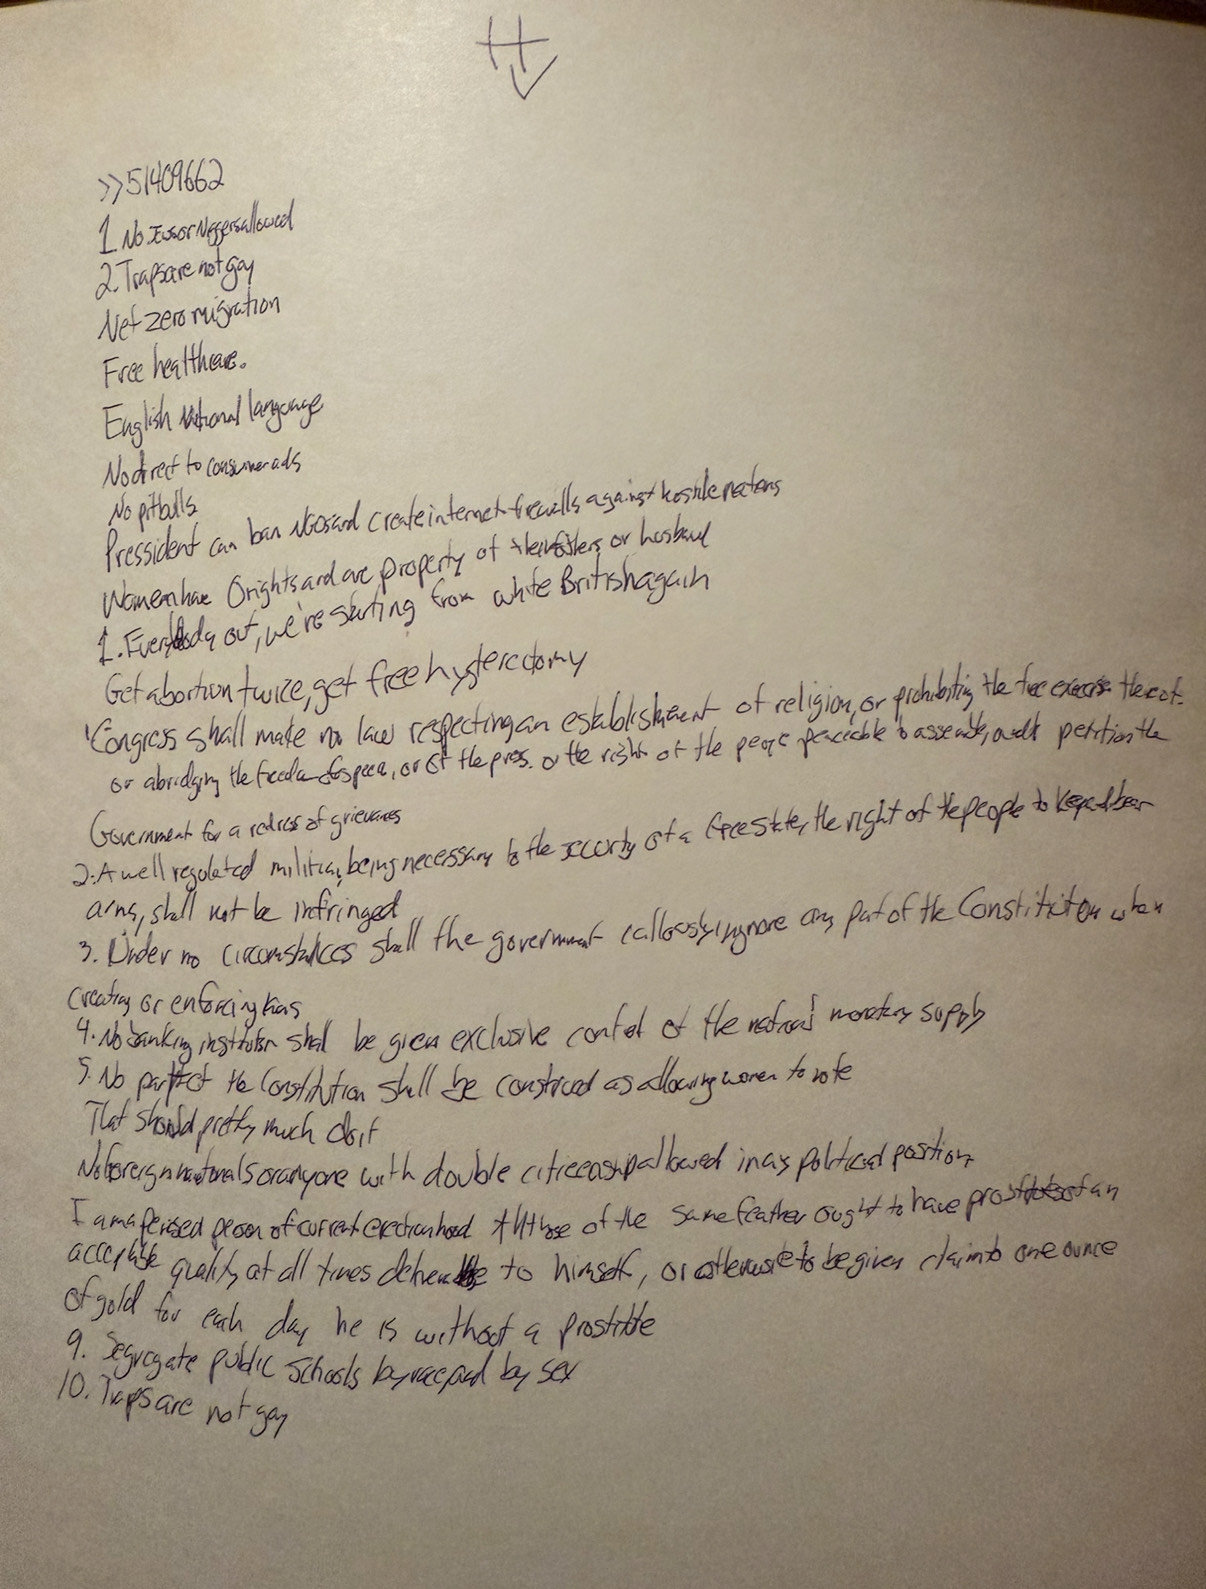 >>51409662
1 No Jews or Niggers allowed
2. Traps are not gay
Net zero migration
Free healthcare.
English National language
No direct to consumer ads
No pitbulls
Pressident can ban NGOs and create internet firewalls against hostile nations
Women have 0 rights and are property of their fathers or husband
1. Everybody out, we're starting from white British again
Get abortion twice, get free hysterectomy
1 Congress shall make no law respecting an establishment of religion, or prohibiting the free exercise thereof.
or abridging the freedom of speech, or of the press. or the right of the people peaceable to assemble, and to petition the
Government for a redress of grievances
2. A well regulated militia, being necessary to the security of a free state, the right of the people to keep and bear
arms, shall not be infringed
3. Under no circumstances shall the government callously ignore any part of the Constitution when
creating or enforcing laws
4. No banking institution shall be given exclusive control of the national monetary supply
5. No part of the Constitution shall be construed as allowing women to vote
That should pretty much do it
No foreign nationals or anyone with double citizenship allowed in any political position
I am a person of current erectionhood those of the same feather ought to have prostitutes of an
acceptable quality at all times deliverable to himself, or otherwise to be given claim to one ounce
of gold for each day he is without a prostitute
9. Segregate public schools by race and by sex
10. Traps are not gay